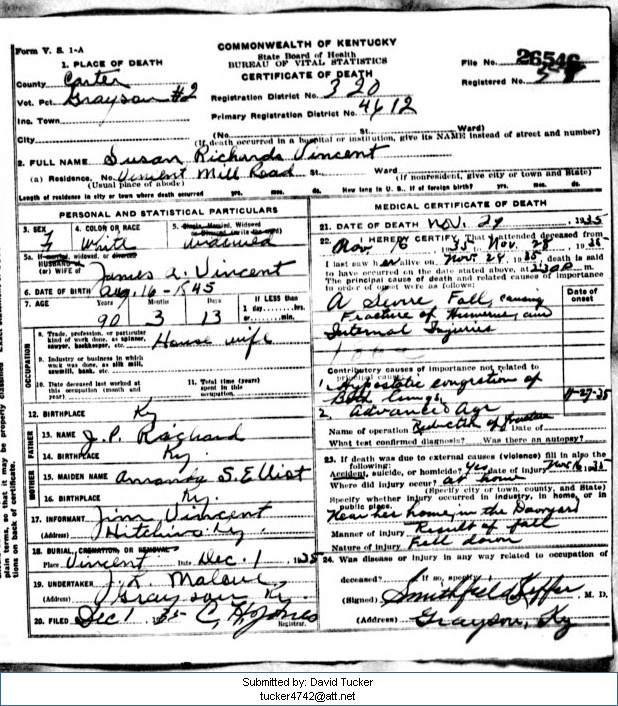 Form V. S. 1-A
COMMONWEALTH OF KENTUCKY
State Board of Health
BUREAU OF VITAL STATISTICS
CERTIFICATE OF DEATH
File No. 26546
Registered No.
1. PLACE OF DEATH
County Carter
Vot. Pct. Grayson #2
Inc. Town
City
Registration District No. 320
Primary Registration District No. 4612
(No. St. Ward)
(If death occurred in a hospital or institution, give its NAME instead of street and number)
2. FULL NAME Susan Richards Vincent
(a) Residence. No. Vincent Mill Road St. Ward
(Usual place of abode) (If nonresident, give city or town and State)
Length of residence in city or town where death occurred yrs. mos. ds. How long in U. S., if of foreign birth? yrs. mos. ds.
PERSONAL AND STATISTICAL PARTICULARS
3. SEX F
4. COLOR OR RACE White
5. Single, Married, Widowed
Widowed
5a. If married, widowed, or divorced
HUSBAND of
(or) WIFE of James L. Vincent
6. DATE OF BIRTH Aug. 16 - 1845
7. AGE Years Months Days If LESS than
1 day, hrs.
or min.
90 3 13
OCCUPATION
8. Trade, profession, or particular
kind of work done, as spinner,
sawyer, bookkeeper, etc. House wife
9. Industry or business in which
work was done, as silk mill,
sawmill, bank, etc.
10. Date deceased last worked at
this occupation (month and
year)
11. Total time (years)
spent in this
occupation
12. BIRTHPLACE Ky
FATHER
13. NAME J. P. Richard
14. BIRTHPLACE Ky.
MOTHER
15. MAIDEN NAME Amanda S. Elliot
16. BIRTHPLACE Ky.
17. INFORMANT Jim Vincent
(Address) Hitchins Ky.
18. BURIAL, CREMATION, OR REMOVAL
Place Vincent Date Dec. 1 1935
19. UNDERTAKER J. L. Malone
(Address) Grayson Ky.
20. FILED Dec 1 35 C. H. Jones
Registrar.
MEDICAL CERTIFICATE OF DEATH
21. DATE OF DEATH Nov. 29, 1935
22. I HEREBY CERTIFY, That I attended deceased from
Nov 6 35, Nov. 28, 1935
I last saw her alive on Nov. 29, 1935 death is said
to have occurred on the date stated above, at 2:30 P. m.
The principal cause of death and related causes of importance
in order of onset were as follows:
Date of
onset
A Severe Fall, causing
Fracture of Humerus, and
Internal Injuries
Contributory causes of importance not related to
principal cause:
1. Hypostatic congestion of
Both lungs 11-27-35
2. Advanced Age
Name of operation Reduction of fracture Date of
What test confirmed diagnosis? Was there an autopsy?
23. If death was due to external causes (violence) fill in also the
following:
Accident, suicide, or homicide? Yes Date of injury Nov 6, 35
Where did injury occur? at home
(Specify city or town, county, and State)
Specify whether injury occurred in industry, in home, or in
public place.
Near her home, in the Dooryard
Manner of injury Result of fall
Nature of injury Fell down
24. Was disease or injury in any way related to occupation of
deceased? If so, specify
(Signed) Smithfield Keffer M. D.
(Address) Grayson, Ky
plain terms, so that it may be properly classified
tions on back of certificate.
Submitted by: David Tucker
tucker4742@att.net